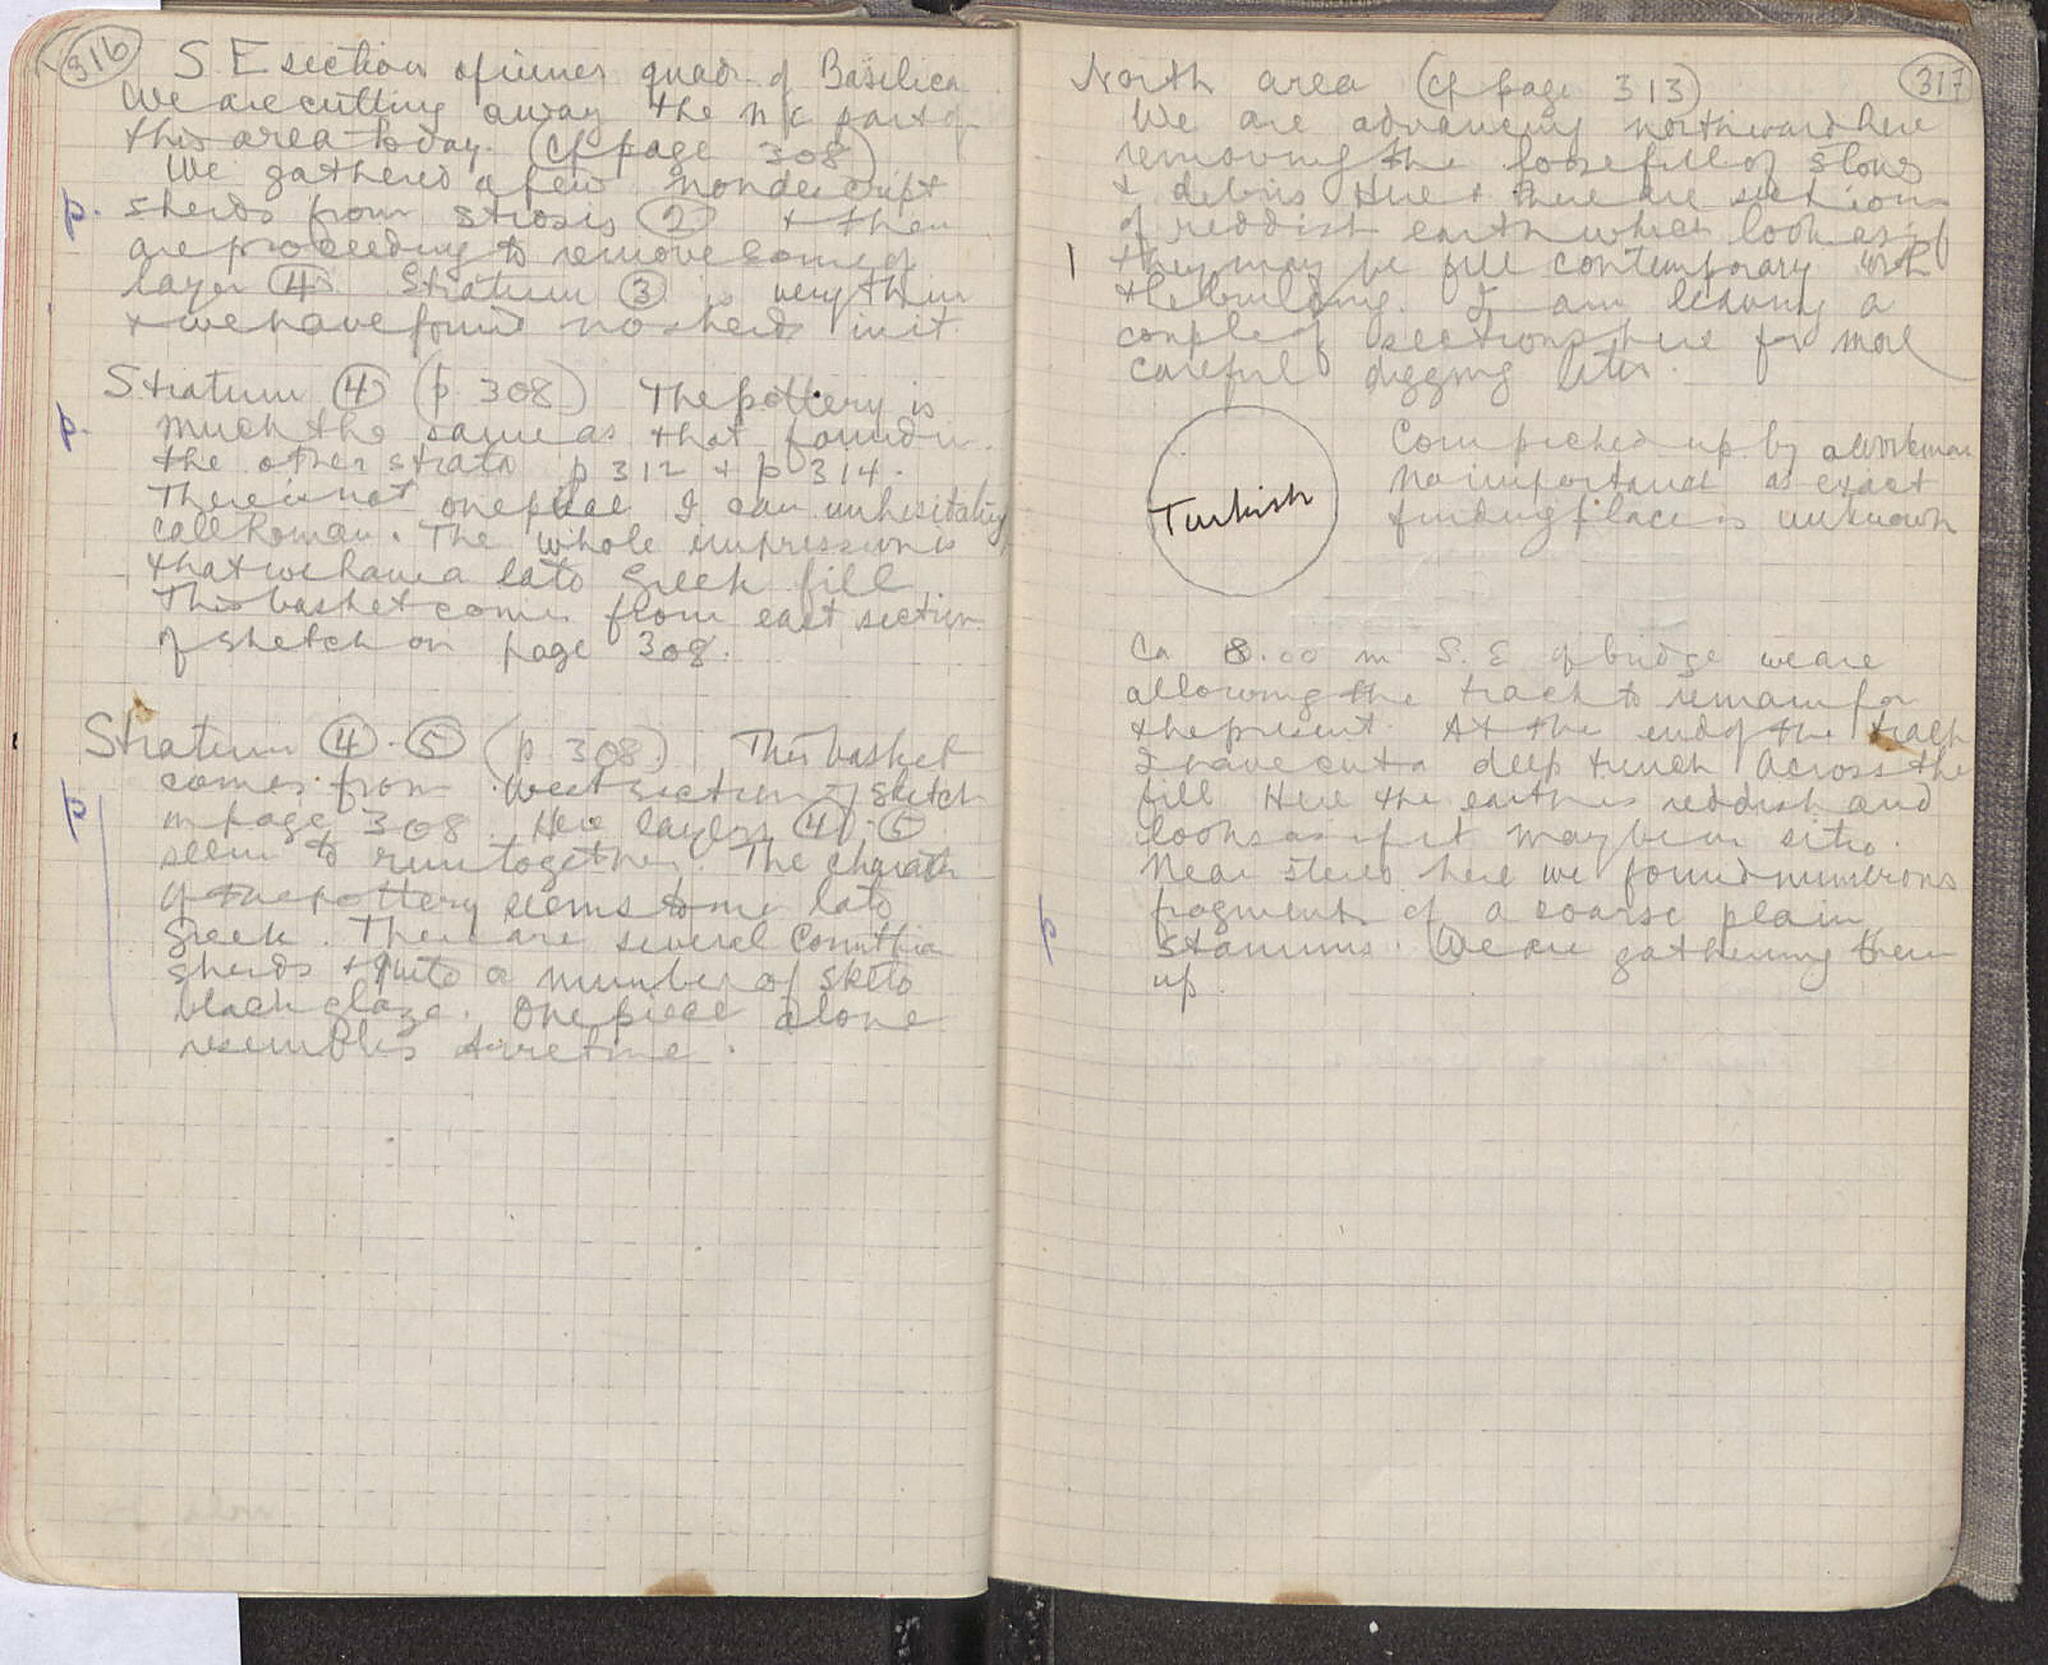 316
S E section of inner quadr. of Basilica
We are cutting away the NE part of
this area today. (Cf page 308)
We gathered a few nondescript
p. sherds from strosis ② & then
are proceeding to remove some of
layer ④ Stratum ③ is very thin
& we have found no sherds in it.
Stratum ④ (p. 308.) The pottery is
p. much the same as that found in
the other strata p 312 & p 314.
There is not one piece I can unhesitatingly
call Roman. The whole impression is
that we have a late Greek fill
This basket comes from east section
of sketch on page 308.
Stratum ④-⑤ (p 308.) This basket
comes from West section of sketch
p on page 308. Here layers ④-⑤
seem to run together. The character
of the pottery seems to me late
Greek. There are several Corinthian
sherds & quite a number of
black glaze. One piece alone
resembles Arretine.
317
North area (Cf page 313)
We are advancing northward here
removing the loose fill of stones
& debris Here & there are sections
of reddish earth which look as if
they may be fill contemporary with
the building. I am leaving a
couple of sections here for more
careful digging later.
Turkish
Coin picked up by a workman
No importance as exact
finding place is unknown
Ca 8.00 m S. E of bridge we are
allowing the track to remain for
the present. At the end of the track
I have cut a deep trench across the
fill Here the earth is reddish and
looks as if it may be in situ.
Near stereo here we found numerous
p fragments of a coarse plain
stamnos. We are gathering them
up.